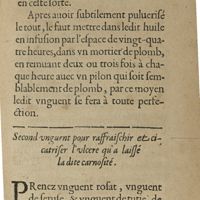 en ceste sorte.
Apres auoir subtilement puluerisé
le tout, le faut mettre dans ledit huile
en infusion par l'espace de vingt-qua-
tre heures, dans vn mortier de plomb,
en remuant deux ou trois fois à cha-
que heure auec vn pilon qui soit sem-
blablement de plomb, par ce moyen
ledit vnguent se fera à toute perfe-
ction.
Second vnguent pour raffraischir et ci-
catriser l'vlcere qu'a laissé
la dite carnosité.
PRenez vnguent rosat, vnguent
de ceruse, & vnguent de tutie, de